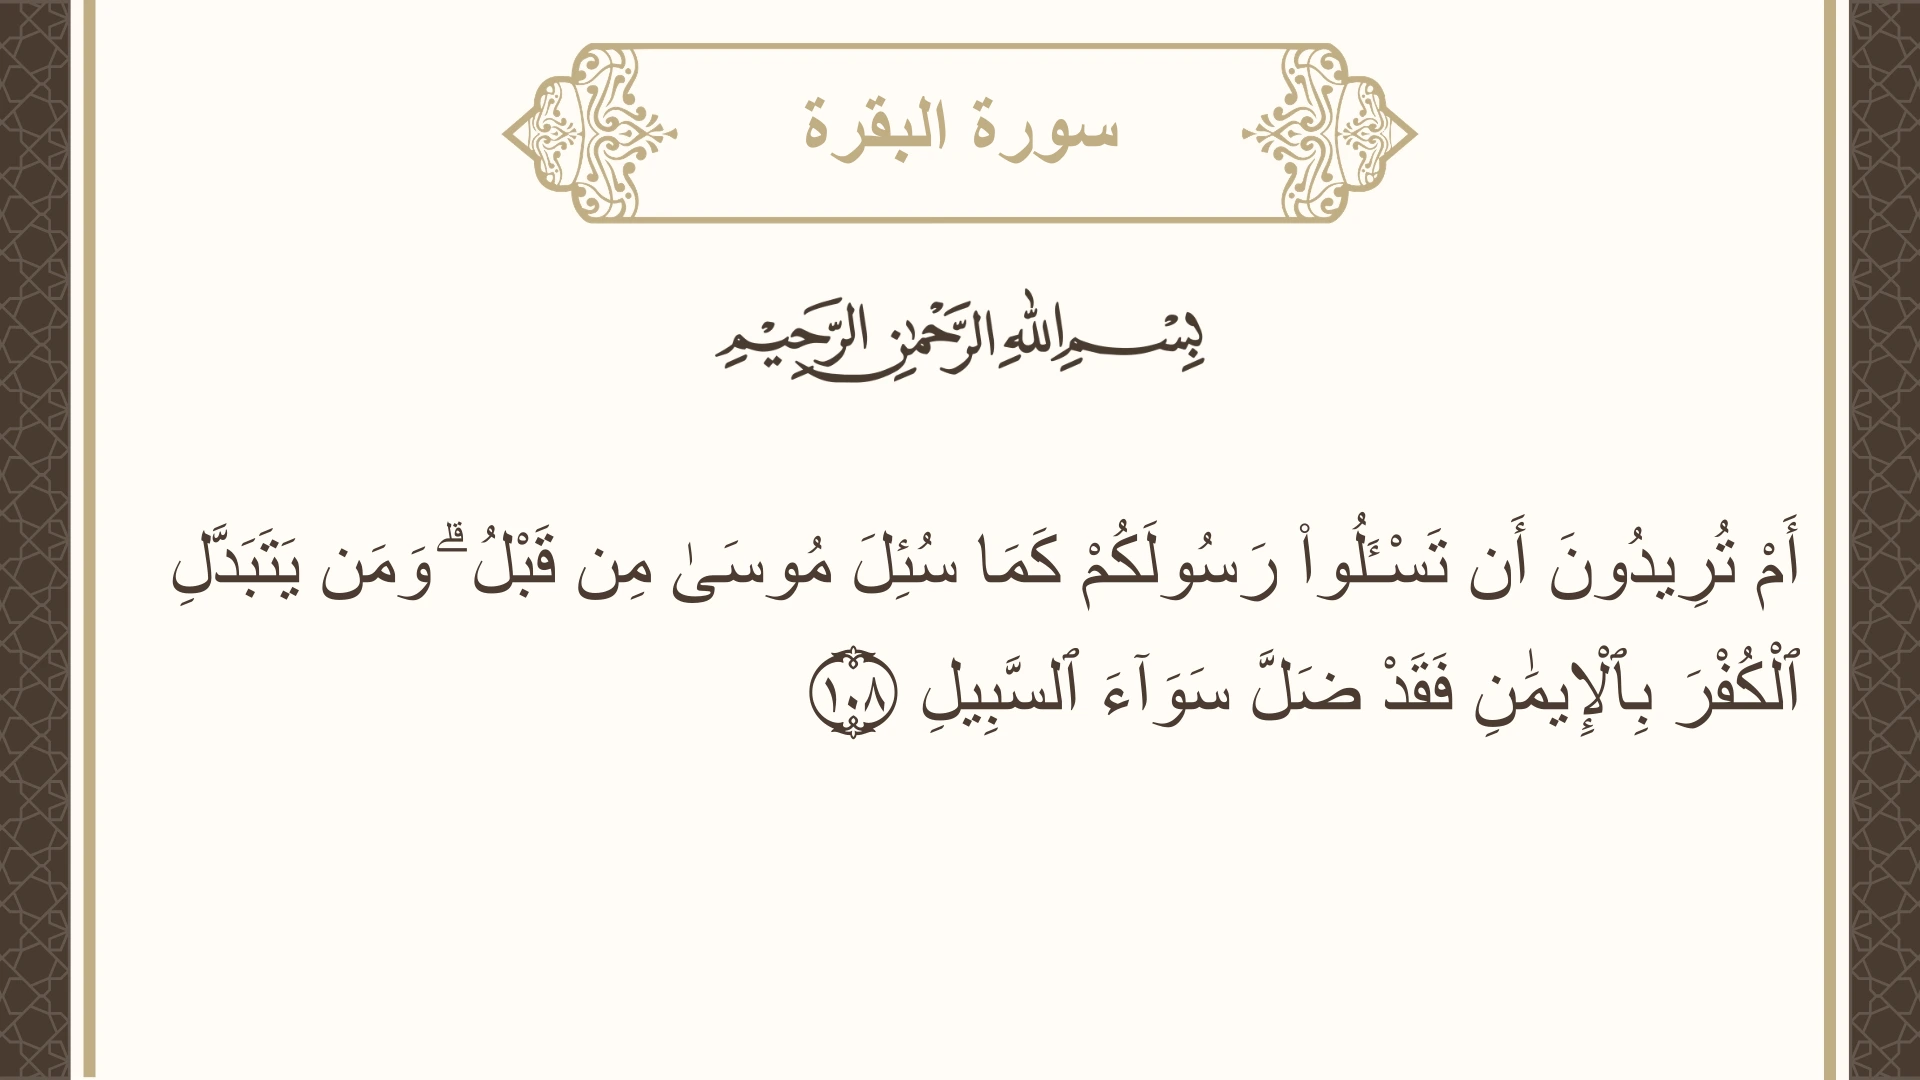 سورة البقرة
بِسْمِ اللهِ الرَّحْمٰنِ الرَّحِيْمِ
أَمْ تُرِيدُونَ أَن تَسْـَٔلُوا۟ رَسُولَكُمْ كَمَا سُئِلَ مُوسَىٰ مِن قَبْلُ ۗ وَمَن يَتَبَدَّلِ
ٱلْكُفْرَ بِٱلْإِيمَٰنِ فَقَدْ ضَلَّ سَوَآءَ ٱلسَّبِيلِ ١٠٨